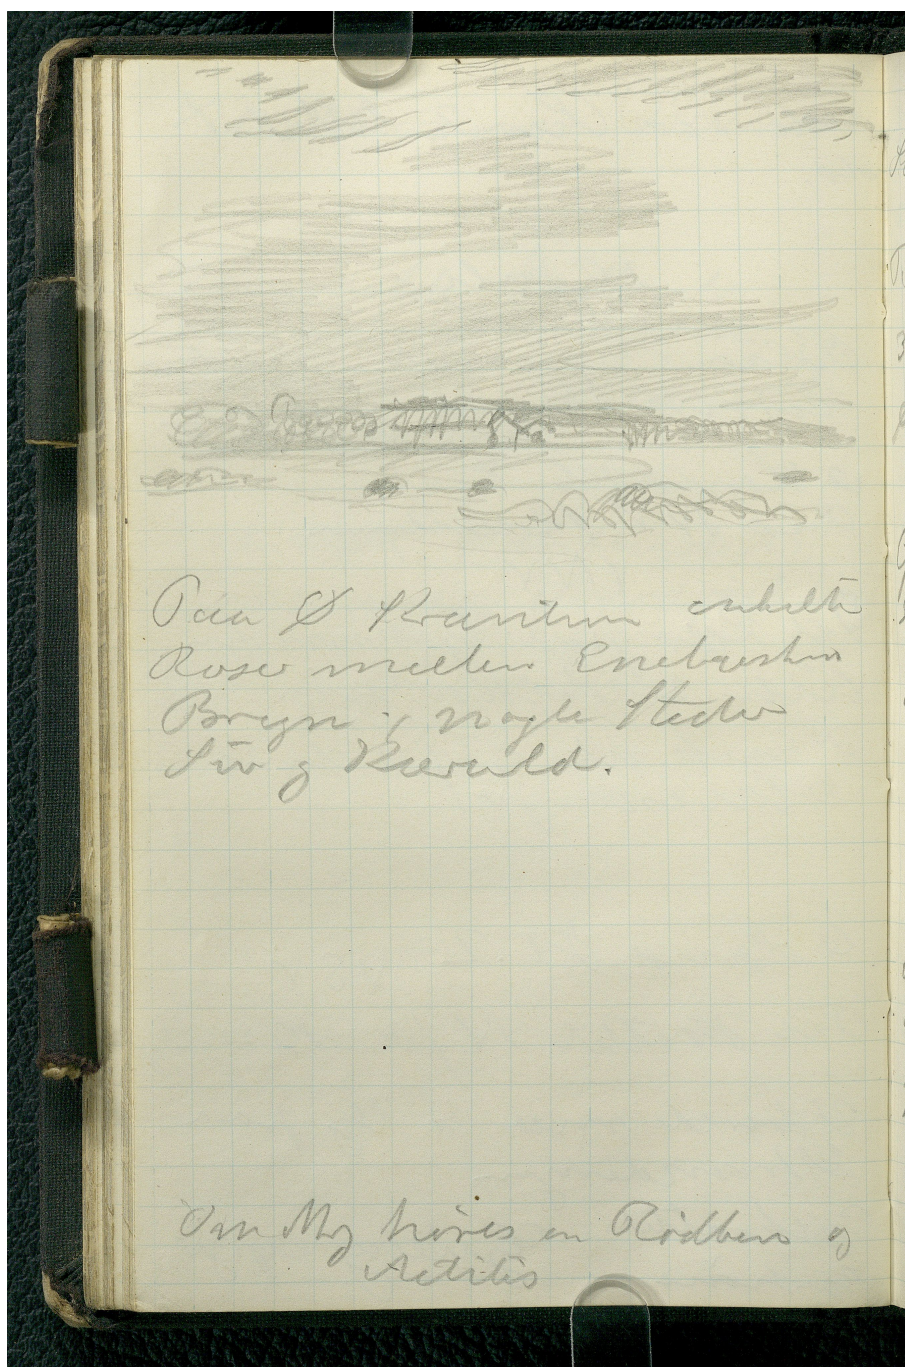 Paa Ø Kanten enkelte
Roser mellem Enebærhv
Bregn i nogle Steder
Siv og Kæruld.
Om Mg høres en Rødben og
Actitis